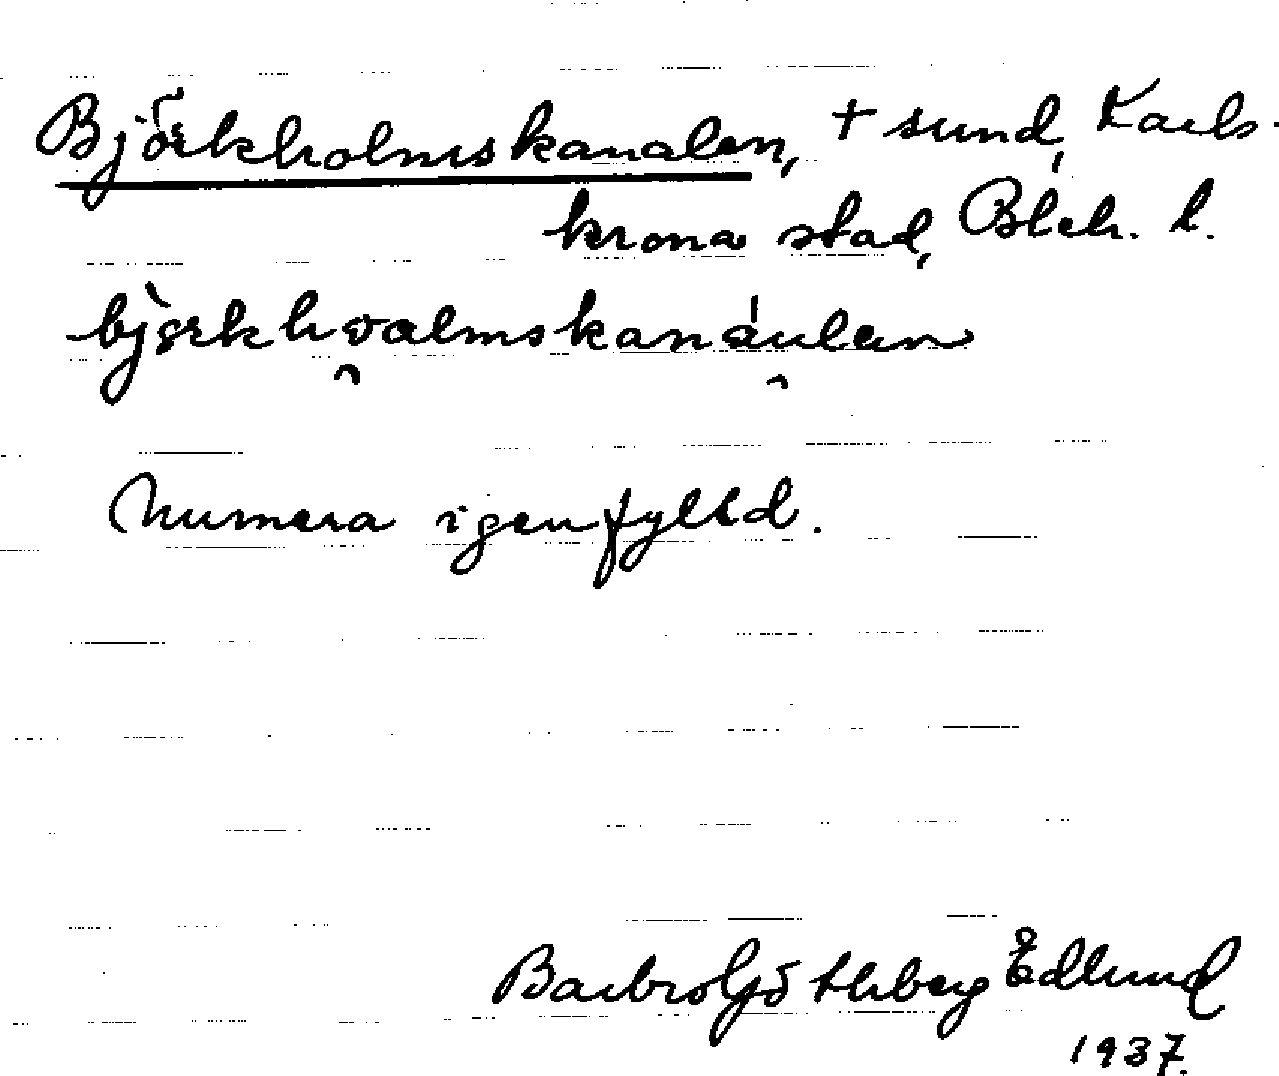 Björkholmskanalen, + sund, Karls-
krona stad, Blek. l.
bjɜrkhoalmskanáulen
Numera igenfylld.
Barbro Götherberg Edlund
1937.